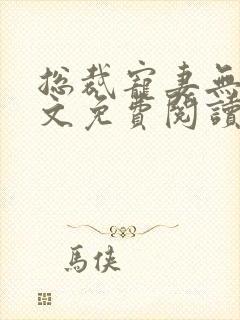 總裁寵妻無
文免費閱讀
馬俠